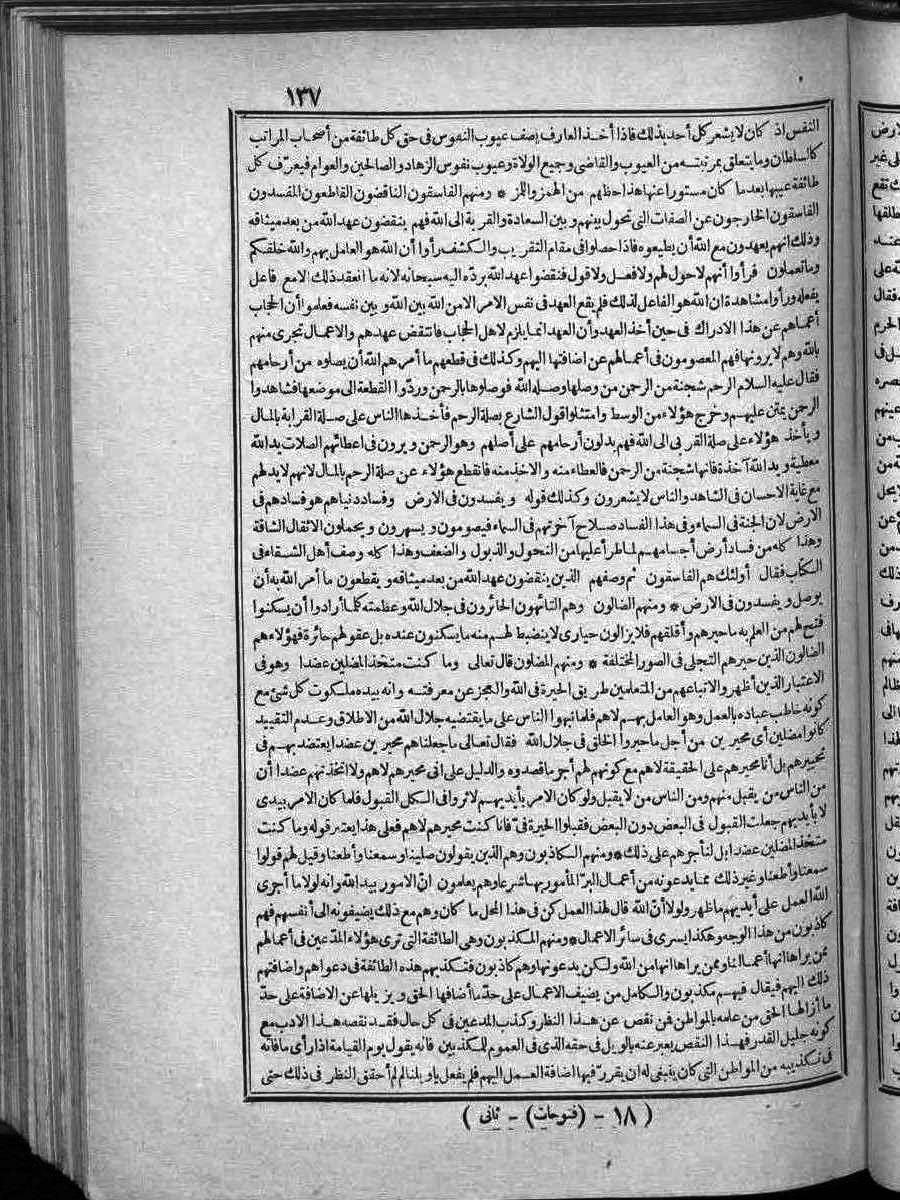 ١٣٧
النفس اذ كان لا يشعر كل أحد بذلك فاذا أخذ العارف يصف عيوب النفوس فى حق كل طائفة من أصحاب المراتب
كالسلطان وما يتعلق بمرتبته من العيوب والقاضى وجميع الولاة وعيوب نفوس الزهاد والصالحين والعوام فيعرّف كل
طائفة عيبها بعد ما كان مستورا عنها هذا حظهم من الهمز واللمز * ومنهم الفاسقون الناقضون القاطعون المفسدون
الفاسقون الخارجون عن الصفات التى تحول بينهم وبين السعادة والقربة الى الله فهم ينقضون عهد الله من بعد ميثاقه
وذلك انهم يعهدون مع الله أن يطيعوه فاذا حصلوا فى مقام التقريب والكشف رأوا أن الله هو العامل بهم والله خلقكم
وما تعملون فرأوا أنهم لا حول لهم ولا فعل ولا قول فنقضوا عهد الله بردّه اليه سبحانه لانه ما انعقد ذلك الا مع فاعل
يفعله ورأوا مشاهدة ان الله هو الفاعل لذلك فلم يقع العهد فى نفس الامر الا من الله بين الله وبين نفسه فعلموا أن الحجاب
أعماهم عن هذا الادراك فى حين أخذ العهد وأن العهد انما يلزم لاهل الحجاب فانتقض عهدهم والاعمال تجرى منهم
بالله وهم لا يرونها فهم المعصومون فى أعمالهم عن اضافتها اليهم وكذلك فى قطعهم ما أمرهم الله أن يصلوه من أرحامهم
فقال عليه السلام الرحم شجنة من الرحمن من وصلها وصله الله فوصلوها بالرحمن وردّوا القطعة الى موضعها فشاهدوا
الرحمن يمتن عليهم وخرج هؤلاء من الوسط وامتثلوا قول الشارع بصلة الرحم فأخذها الناس على صلة القرابة بالمال
ويأخذ هؤلاء على صلة القربى الى الله فهم يدلون أرحامهم على أصلهم وهو الرحمن ويرون فى اعطائهم الصلات يد الله
معطية ويد الله آخذة فانها شجنة من الرحمن فالعطاء منه والاخذ منه فانقطع هؤلاء عن صلة الرحم بالمال لانهم لا يد لهم
مع غاية الاحسان فى الشاهد والناس لا يشعرون وكذلك قوله ويفسدون فى الارض وفساد دنياهم هو فسادهم فى
الارض لان الجنة فى السماء وفى هذا الفساد صلاح آخرتهم فى السماء فيصومون ويسهرون ويحملون الاثقال الشاقة
وهذا كله من فساد أرض أجسامهم لما طرأ عليها من النحول والذبول والضعف وهذا كله وصف أهل الشقاء فى
الكتاب فقال أولئك هم الفاسقون ثم وصفهم الذين ينقضون عهد الله من بعد ميثاقه ويقطعون ما أمر الله به أن
يوصل ويفسدون فى الارض * ومنهم الضالون وهم التائهون الحائرون فى جلال الله وعظمته كلما أرادوا أن يسكنوا
فتح لهم من العلم به ما حيرهم وأقلقهم فلا يزالون حيارى لا ينضبط لهم منه ما يسكنون عنده بل عقولهم حائرة فهؤلاء هم
الضالون الذين حيرهم التجلى فى الصور المختلفة * ومنهم المضلون قال تعالى وما كنت متخذ المضلين عضدا وهو فى
الاعتبار الذين أظهروا لاتباعهم من المتعلمين طريق الحيرة فى الله والعجز عن معرفته وانه بيده ملكوت كل شئ مع
كونه خاطب عباده بالعمل وهو العامل بهم لا هم فلما نبهوا الناس على ما يقتضيه جلال الله من الاطلاق وعدم التقييد
كانوا مضلين أى محيرين من أجل ما حيروا الخلق فى جلال الله فقال تعالى ما جعلناهم محيرين عضدا يعتضد بهم فى
تحييرهم بل أنا محيرهم على الحقيقة لا هم مع كونهم لهم أجر ما قصدوه والدليل على انى محيرهم لا هم ولا اتخذتهم عضدا أن
من الناس من يقبل منهم ومن الناس من لا يقبل ولو كان الامر بأيديهم لاثروا فى الكل القبول فلما كان الامر بيدى
لا بأيديهم جعلت القبول فى البعض دون البعض فقبلوا الحيرة فىّ فانا كنت محيرهم لا هم فعلى هذا يعتبر قوله وما كنت
متخذ المضلين عضدا بل لنأجرهم على ذلك * ومنهم الكاذبون وهم الذين يقولون صلينا وسمعنا وأطعنا وقيل لهم قولوا
سمعنا وأطعنا وغير ذلك مما يدعونه من أعمال البرّ المأمور بها شرعا وهم يعلمون انّ الامور بيد الله وانه لولا ما أجرى
الله العمل على أيديهم ما ظهر ولولا أنّ الله قال لهذا العمل كن فى هذا المحل ما كان وهم مع ذلك يضيفونه الى أنفسهم فهم
كاذبون من هذا الوجه وهكذا يسرى فى سائر الاعمال * ومنهم المكذبون وهى الطائفة التى ترى هؤلاء المدّعين فى أعمالهم
ممن يراها انها أعمالنا وممن يراها انها من الله ولكن يدعونها وهم كاذبون فتكذبهم هذه الطائفة فى دعواهم واضافتهم
ذلك اليهم فيقال فيهم مكذبون والكامل من يضيف الاعمال على حدّ ما أضافها الحق ويزيلها عن الاضافة على حدّ
ما أزالها الحق من علمه بالمواطن فمن نقص عن هذا النظر وكذب المدعين فى كل حال فقد نقصه هذا الادب مع
كونه جليل القدر فهذا النقص يعبر عنه بالويل فى حقه الذى فى العموم للمكذبين فانه يقول يوم القيامة اذا رأى ما فاته
فى تكذيبه من المواطن التى كان ينبغى له ان يقرر فيها اضافة العمل اليهم فلم يفعل ياويلنا لم لم أحقق النظر فى ذلك حتى
( ١٨ - (فتوحات) - ثانى )